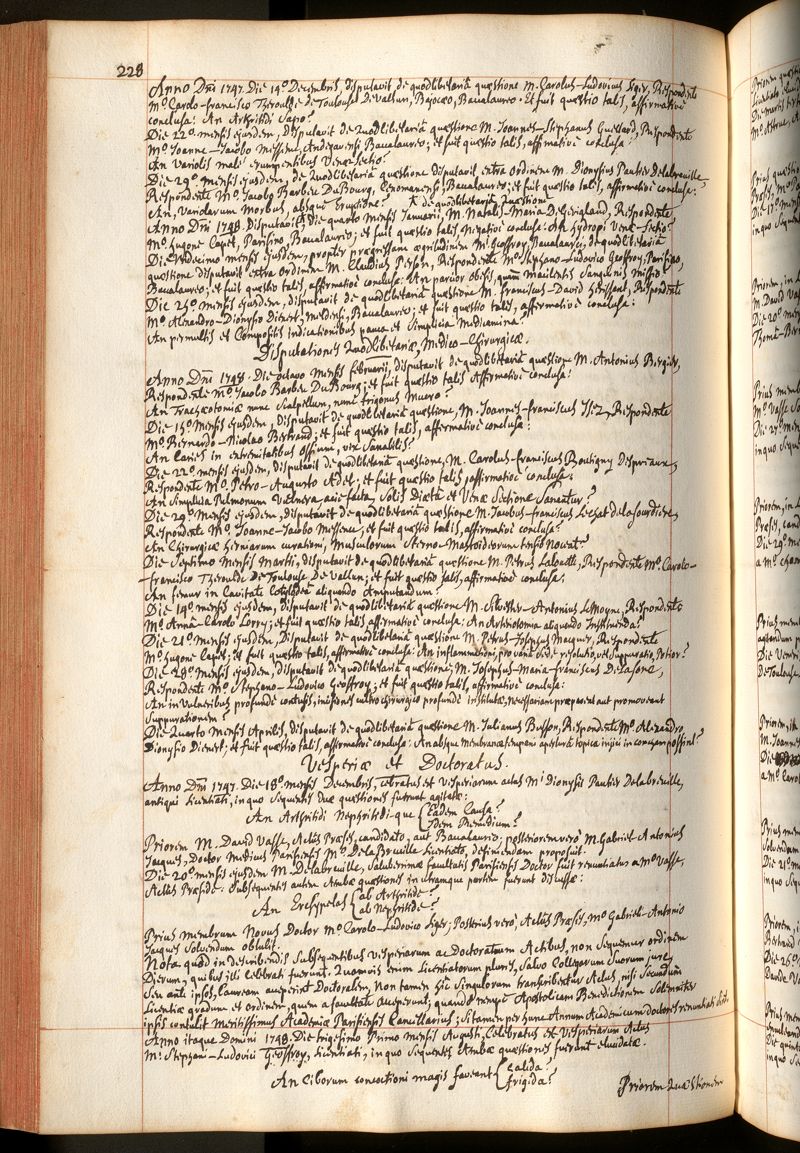 228
Anno Dni 1747. Die 14º Decembris disputavit de quodlibetariâ quæstione M. Carolus-Ludovicus Liger, Respondente
Mº Carolo-francisco Theroulde De Toulouse De Vallun, Bajocæo, Baccalaureo. Et fuit quæstio talis, affirmativè
conclusa: An Arthritidi Sapo?
Die 22º mensis ejusdem, Disputavit de Quodlibetariâ quæstione M. Joannes-Stephanus Guettard, Respondente
Mº Joanne-Jacobo Messence, Andegavensi Baccalaureo; et fuit quæstio talis, affirmativè conclusa:
An Variolis malè erumpentibus Venæ Sectio?
Die 29º mensis ejusdem, de Quodlibetariâ quæstione disputavit extra ordinem M. Dionysius Pautier Delabreuille,
Respondente Mº Jacobo Barbeu DuBourg, Cenomanensi, Baccalaureo; et fuit quæstio talis, affirmativè conclusa:
An, Variolarum Morbus, absque Eruptione? de quodlibetariâ Quæstione
Anno Dni 1748. Disputavit, Die quarto mensis Januarii, M. Natalis-Maria De Gevigland, Respondente
Mº Hugone Capet, Parisino, Baccalaureo; et fuit quæstio talis, Negativè conclusa: An Hydropi Venæ-Sectio?
Die Undecimo mensis ejusdem, propter prægressam ægritudinem Mi Geoffroy, Baccalaurei, de quodlibetariâ
quæstione disputavit extra ordinem M. Claudius Person, Respondente Mº Stephano-Ludovico Geoffroy, Parisino,
Baccalaureo; et fuit quæstio talis, affirmativè conclusa: An parcior obesis, quàm macilentis Sanguinis missio?
Die 25º mensis ejusdem, disputavit de quodlibetariâ quæstione M. Franciscus-David Herissant, Respondente
Mº Alexandro-Dionysio Dienert, Meldensi, Baccalaureo; et fuit quæstio talis, affirmativè conclusa:
An permultis et Compositis indicationibus pauca et Simplicia Medicamina?
Disputationes Quodlibetariæ, Medico-Chirurgicæ.
Anno Dni 1748. Die octavo mensis februarii, disputavit de quodlibetariâ quæstione M. Antonius Bergier,
Respondente Mº Jacobo Barbeu DuBourg; et fuit quæstio talis Affirmativè conclusa:
An Tracheotomiæ nunc Scalpellum, nunc trigonus Mucro?
Die 15º mensis ejusdem, disputavit de quodlibetariâ quæstione, M. Joannes-franciscus Respondente
Mº Bernardo-Nicolao Bertrand; et fuit quæstio talis, affirmativè conclusa:
An Caries in extremitatibus Ossium, vix Sanabilis?
Die 22º mensis ejusdem, disputavit de quodlibetariâ quæstione, M. Carolus-franciscus Boutigny Despreaux,
Respondente Mº Petro-Augusto Adet; et fuit quæstio talis, affirmativè conclusa:
An Simplicia Pulmonum Vulnera, acie facta, Solis Diætâ et Venæ Sectione Sanentur?
Die 29º mensis ejusdem, disputavit de quodlibetariâ quæstione M. Jacobus-franciscus Lechat delaSourdiere,
Respondente Mº. Joanne-Jacobo Messence, et fuit quæstio talis, affirmativè conclusa:
An Chirurgicæ herniarum curationi, musculorum Sterno-Mastoideorum tensio Noceat?
Die Septimo Mensis Martii, disputavit de quodlibetariâ quæstione M. Petrus Lalouette, Respondente Mº. Carolo-
-francisco Theroulde De Toulouse De Vallun; et fuit quæstio talis, affirmativè conclusa:
An femur in Cavitate Cotyloideâ aliquando Amputandum?
Die 14º mensis ejusdem, disputavit de quodlibetariâ quæstione M. Silvester-Antonius LeMoyne, Respondente
Mº Anna-Carolo Lorry; et fuit quæstio talis affirmativè conclusa: An Arteriotomia aliquando Instituenda?
Die 21º mensis ejusdem, Disputavit de quodlibetariâ quæstione M. Petrus-Josephus Macquer, Respondente
Mº Hugone Capet; et fuit quæstio talis, affirmativè conclusa: An inflammationi, pro variâ Sede, resolutio, et Suppuratio, Potior?
Die 28º mensis ejusdem, disputavit de quodlibetariâ quæstione; M. Josephus-Maria-franciscus DeLasone,
Respondente Mº Stephano-Ludovico Geoffroy; et fuit quæstio talis, affirmativè conclusa:
An in Vulneribus profundè contusis, incisiones ultro chirurgico profundè institutæ, necessariam præparent aut promoveant
Suppurationem?
Die Quarto mensis Aprilis, disputavit de quodlibetariâ quæstione M. Julianus Busson, Respondente Mº. Alexandro
Dionysio Dienert; et fuit quæstio talis, affirmativè conclusa: An absque membranæ tympani aperturâ topica injici in concham possint?
Vesperiæ et Doctoratus.
Anno Dni 1747. Die 18º mensis Decembris, celebratus est Vesperiarum actus Mi Dionysii Pautier Delabreuille,
antiqui Licentiati, in quo Sequentes Duæ quæstiones fuerunt agitatæ:
An Arthritidi Nephritidi-que { Eadem Causa?
Idem Remedium?
Priorem M. David Vasse, Actûs Præses, candidato, aut Baccalaureo: posteriorem verò M. Gabriel-Antonius
Jacques, Doctor Medicus Parisiensis Mº. DeLaBreuille Licentiato, definiendam proposuit.
Die 20º mensis ejusdem M. Delabreuille, Saluberrimæ facultatis Parisiensis Doctor fuit renuntiatus a Mº Vasse,
Actûs Præside. Subsequentes autem Ambæ quæstiones in utramque partem fuerunt discussæ:
An Eresypelas { ab Arthritide?
ab Nephritide?
Prius membrum Novus Doctor Mº Carolo-Ludovico Liger; Posterius verò, Actûs Præses, Mº Gabriel-Antonio
Jacques Solvendum obtulit.
Nota quod in describendis Subsequentibus Vesperiarum ac Doctoratuum Actibus, non Sequemur ordinem
Dierum, quibus illi celebrati fuerunt. Quamvis enim Licentiatorum plures, Salvo Collegarum Suorum jure,
Seu ante ipsos, Lauream acceperint Doctoralem, Non tamen hic Singulorum transcribentur Actus, nisi Secundùm
Licentiæ gradum et ordinem, quem a facultate acceperunt, quandò nempe Apostolicam Benedictionem Solemniter
ipsis contulit Meritissimus Academiæ Parisiensis Cancellarius; Si tamen per hunc Annum Academicum doctores renuntiati
Anno itaque Domini 1748. Die trigesimo Primo Mensis Augusti, Celebratus est Vesperiarum Actus
Mi Stephani-Ludovici Geoffroy, Licentiati, in quo Sequentes Ambæ quæstiones fuerunt elucidatæ.
An Ciborum concoctioni magis faveant { Calida?
frigida?
Priorem Quæstionem